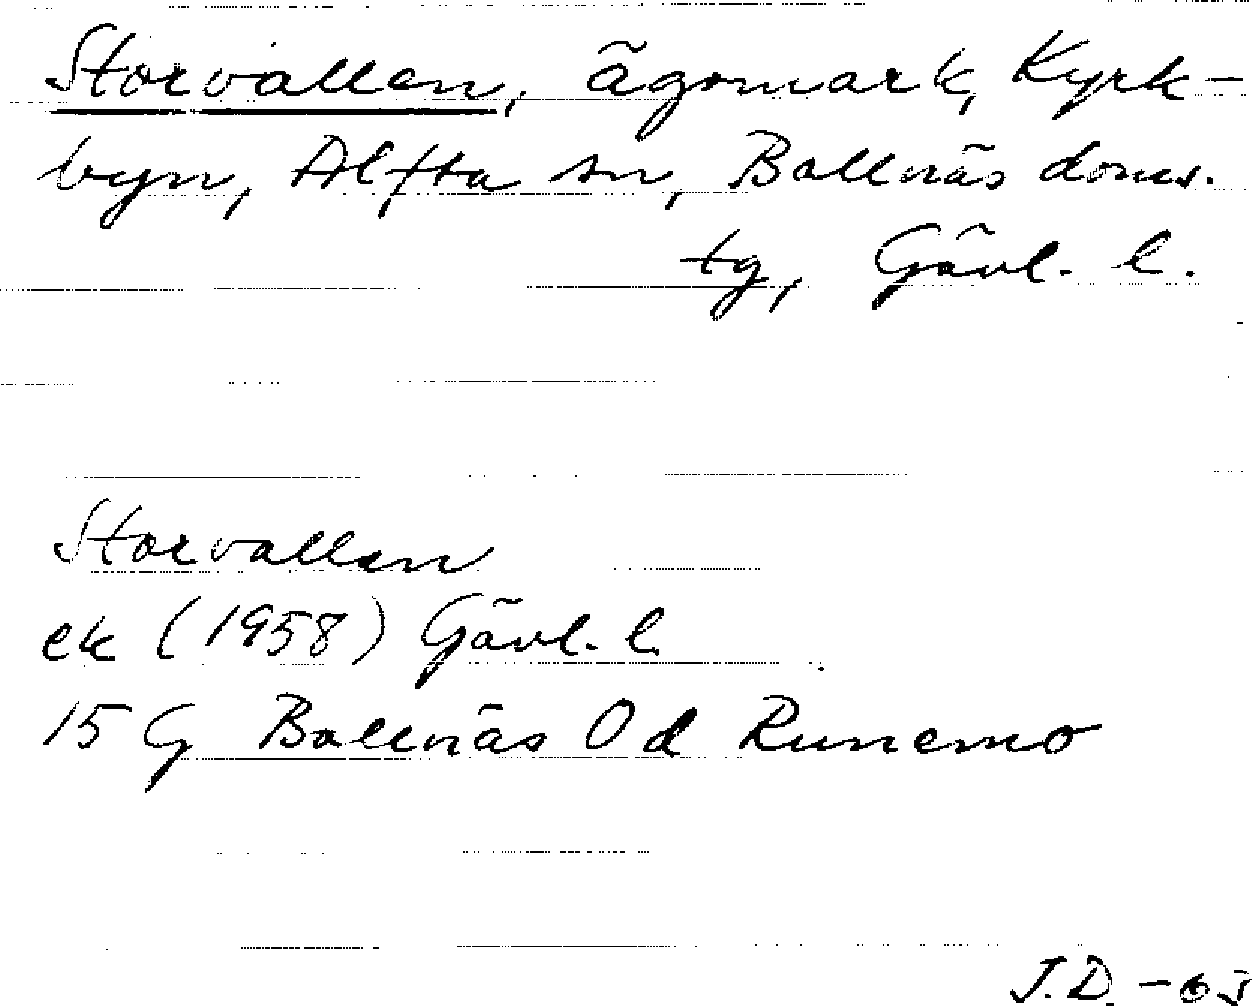 Storvallen, ägomark, Kyrk-
byn, Alfta sn, Bollnäs doms.
tg, Gävl. l.
Storvallen
ek (1958) Gävl. l.
15 G Bollnäs Od Runemo
J.D. -63